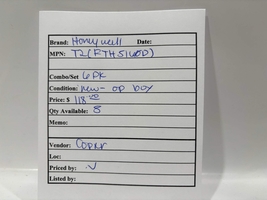 Brand: Honeywell Date:
MPN: T2 (RTH5160D)
Combo/Set 6 PK
Condition: new - op box
Price: $ 118
Qty Available: 8
Memo:
Vendor:
Loc:
Priced by: V
Listed by: